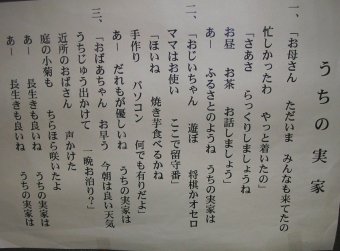 うちの実家
一、「お母さん　ただいま　みんなも来てたの
忙しかったわ　やっと着いたの」
「さあさ　らっくりしましょうね
お昼　お茶　お話しましょう」
あー　ふるさとのようね　うちの実家は
二、「おじいちゃん　遊ぼ　将棋かオセロ
ママはお使い　ここで留守番」
「ほいね　焼き芋食べるかね
手作り　パソコン　何でも有りだよ」
あー　だれもが優しいね　うちの実家は
三、「おばあちゃん　お早う　今朝は良い天気
うちじゅう出かけて　一晩お泊り？」
近所のおばさん　声かけた
庭の小菊も　ちらほら咲いたよ
あー　長生きも良いね　うちの実家は
あー　長生きも良いね　うちの実家は